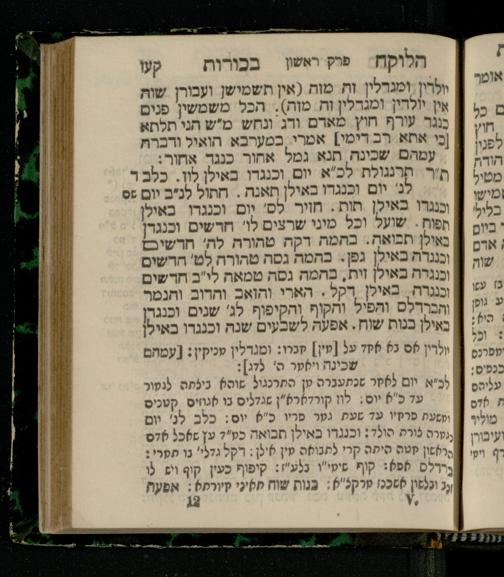 הלוקח פרק ראשון בכורות קעז
יולדין ומגדלין זה מזה (אין תשמישן ועבורן שוה
אין יולדין ומגדלין זה מזה). הכל משמשין פנים
כנגד עורף חוץ מאדם ודג ונחש מ"ש הני תלתא
[כי אתא רב דימי] אמרי במערבא הואיל ודברה
עמהם שכינה תנא גמל אחור כנגד אחור:
ת"ר תרנגולת לכ"א יום וכנגדו באילן לוז. כלב ד
לנ' יום וכנגדו באילן תאנה. חתול לנ"ב יום שם
וכנגדו באילן תות. חזיר לס' יום וכנגדו באילן
תפוח. שועל וכל מיני שרצים לו' חדשים וכנגדן
באילן תבואה. בהמה דקה טהורה לה' חדשים
וכנגדה באילן גפן. בהמה גסה טהורה לט' חדשים
וכנגדה באילן זית. בהמה גסה טמאה לי"ב חדשים
וכנגדה באילן דקל. הארי והזאב והדוב והנמר
והברדלס והפיל והקוף והקיפוף לג' שנים וכנגדן
באילן בנות שוח. אפעה לשבעים שנה וכנגדו באילן
יולדין אם בא אחד על [מין] חברו: ומגדלין מניקין: [עמהם
שכינה ויאמר ה' לדג]:
לכ"א יום לאחר שנתעברה מן התרנגול שוהא ביצתה לגמור
עד כ"א יום: לוז קורדארא"ן שגדלים בו אגוזים קטנים
ומשעת פרחיו עד שעת גמר פריו כ"א יום: כלב לנ' יום
נגמרה צורת הולד: וכנגדו באילן תבואה כמ"ד עץ שאכל אדם
הראשון חטה היתה קרי לתבואה מין אילן: דקל גדלי' בו תמרי:
ברדלס אפא: קוף שימי"ו בלע"ז: קיפוף כעין קוף ויש לו
זנב ובלשון אשכנז מרקל"א: בנות שוח תאיני חיורתא: אפעה
12 V.